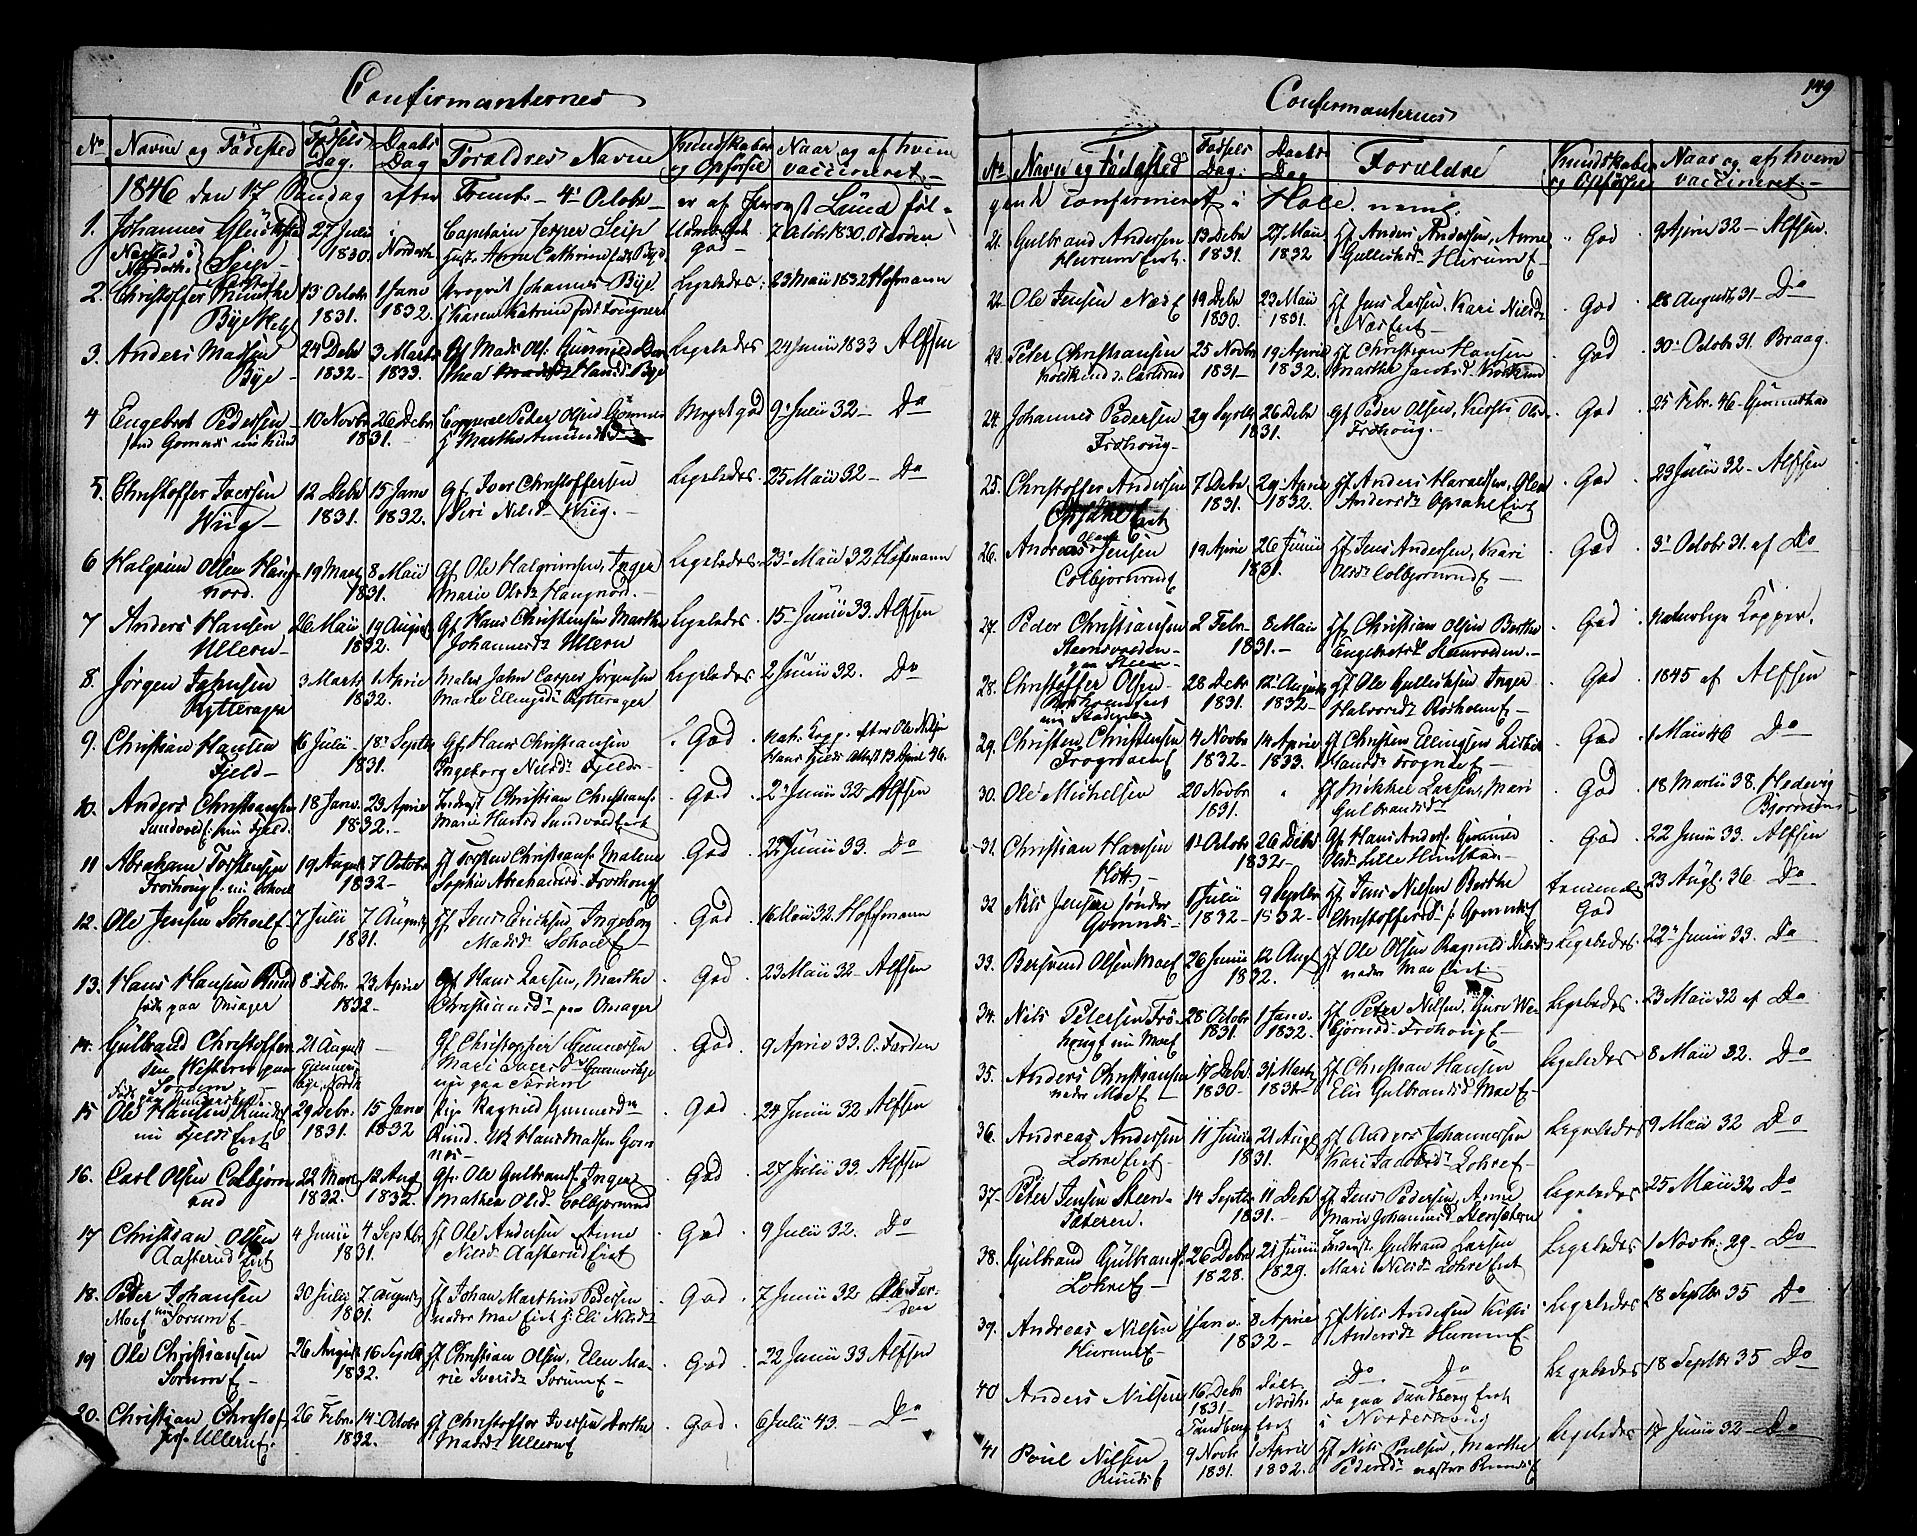 Confirmanternes
No Navne og Fødested Fødsels Dag. Daabs Dag Forældres Navne Kundskaber og Opførsel Naar og af hvem vaccineret.
1846 den 17 Søndag efter Trinit. 4 Octobr er af Provst Lund føl-
1. Johannes Glückstad Seip 27 Julii 1830. Norderh. Capitain Jesper Seip Hust. Anne Cathrine f. Bye god 7 Octobr 1830. O. Farden
2. Christoffer Munthe Bye 13 Octobr 1831. 1 Janv 1832. Johannes Bye. Karen Katrine Ligeledes. 23 Maii 1832 Hofmann
3. Anders Madsen Bye 24 Debr 1832 3 Marts 1833. Gf. Mads Olss. Ligeledes 24 Junii 1833 Alfsen
4 Engebret Pedersen 10 Novbr 26 Debr 1831. Corporal Peder Olsen Martha Amunds Meget god 9 Julii 32 Do
5. Christoffer Iversen Wiig 12 Debr 1831. 15 Janv 1832. Gf. Iver Christoffersen Siri Nilsd. Wiig. Ligeledes 25 Maii 32 Do
6 Halgrim Olsen Haugnord. 19 Marts 8 Maii 1831. Gf. Ole Halgrimsen, Inger Marie Olsd. Haugnord. Ligeledes 23 Maii 32 Hofmann
7 Anders Hansen Ullern 26 Maii 19 August 1832. Gf. Hans Christensen Marthe Johannesd. Ullern Ligeledes 15 Junii 33. Alfsen
8. Jørgen Jahnsen Rytterager 3 Marts 1 April 1832. Maler Jahn Casper Jørgensen Marie Ellingsd. Rytterager Ligeledes 2 Junii 32. Do
9. Christian Hansen Fjeld 16 Julii 18 Septbr 1831. Gf. Hans Christiansen Ingeborg Nilsd. Fjeld God nat. Kopp. efter Ole Nilsen Hans Fjelds Attest 13 April 46.
10. Anders Christiansen Sundvold nu Fjeld. 18 Janv. 23 April 1832. Christian Christians. Marie Hansd. Sundvold God. 2 Junii 32 Alfsen
11 Abraham Torstensen Frøhoug 19 August 7 Octobr 1832 Hf Torsten Christians. Malene Sophie Abrahamsd. Frøhoug God 22 Junii 33. Do
12. Ole Jensen Sohol E. 7 Julii 7 August 1831. Hf Jens Erichsen, Ingeborg Madsd. Sohol E. God 16 Maii 32. Hoffmann
13. Hans Hansen Rund født paa Onsager 8 Febr. 23 April 1832 Gf Hans Larsen, Marthe Christiansd. paa Onsager God 23 Maii 32 Alfsen
14. Gulbrand Christoffersen Western paa Sørum 21 August Gf Christopher Gunnersen God. 9 April 33. O. Farden
15 Ole Hansen Rund nu Fjelds Eiet 29 Debr. 1831. 15 Janv 1832 Pige Ragnild Gunnersd. Rund. Uk Hans Madsen Gomnæs God 24 Junii 32 Alfsen
16. Carl Olsen Colbjørnrud 22 Marts 1832. 12 Augt 1832. Gf. Ole Gulbrands. Inger Mathea Olsd. Colbjørnrud God 27 Julii 33. Alfsen
17 Christian Olsen Aasterud Eiet 4 Junii 4 Septbr 1831. Hf Ole Andersen Anne Nilsd. Aasterud Eiet God 9 Julii 32. Do
18. Peder Johansen Moe nu Sørum E 30 Julii 7 August 1831. Hf Johan Marthin Pedersen nedre Moe Eiet H. Eli Nilsd. God 7 Junii 32 Ole Farden
19 Ole Christiansen Sørum E. 26 August 16 Septbr 1832. Hf Christian Olsen, Elen Marie Iversd. Sørum E. God 22 Junii 33 Alfsen
20. Christian Christofs. Ullern E. 26 Febr. 14 Octobr 1832. Hf Christoffer Iversen Dorthe Madsd. Ullern E God 6 Julii 43. Do
Confirmanternes 149
No Navne og Fødested Fødsels Dag. Daabs Dag Forældre Kundskaber og Opførsel Naar og af hvem vaccineret.
gende confirmeret i Hole. nemlig.
21. Gulbrand Andersen Hurum Eiet. 13 Debr 1831. 27 Maii 1832 Hf Anders Andersen, Anne Gulliksd. Hurum E. God 9 April 32 Alfsen.
22. Ole Jensen Næs E 19 Debr 1830. 23 Maii 1831. Hf Jens Larsen. Kari Nilsd. Næs Eiet God 28 August 31 Do
23. Peter Christiansen 25 Novbr 1831 19 April 1832. Hf Christian Hansen Marthe Jacobsd. God 30 Octobr 31. Braag.
24. Johannes Pedersen Frøhoug 29 Septbr 26 Debr 1831. Gf Peder Olsen, Kersti Olsd. Frøhoug. God 25 Febr. 46
25. Christoffer Andersen Opsahl Eiet 7 Debr 1831. 29 April 1832. Hf Anders Haraldsen, Olea Andersd. Opsahl Eiet God 23 Julii 32 Alfsen
26. Andreas Jensen Colbjørnrud E 19 April 26 Junii 1831. Hf Jens Andersen, Kari Olsd. Colbjørnrud E. God 3 Octobr 31. af Do
27. Peder Christiansen Steensvolden paa Steen 2 Febr. 8 Maii 1831. Hf Christian Olsen Berthe Engebretsd. Steensvolden. God Naturlige Kopper.
28. Christoffer Olsen 28 Debr 1831. 12 August 1832 Hf Ole Gulliksen, Inger Halvorsd. Rosholm E. God 1845 af Alfsen
29. Christen Christensen Frogner E 4 Novbr 1832. 14 April 1833. Gf Christen Ellingsen Hansd. Frogner E. God 1 Maii 46 Do
30. Ole Michelsen 20 Novbr 1831. Hf Mikkel Larsen, Mari Gulbrandsd. God 18 Martii 38. Hedevig Bjørnsens
31. Christian Hansen 1 Octobr 26 Debr 1832 Gf Hans Anders. Gunnild Olsd. Lille God 22 Junii 33. Alfsen
32 Nils Jensen søndre Gomnes 1 Julii 1832 9 Septbr 1832 Hf Jens Nilsen Berthe Christoffersd. s. Gomnes E Temmelig God 23 Augt. 36 Do
33. Bersvend Olsen Moe E 26 Junii 12 Augt 1832. Hf Ole Olsen Ragnild Nilsd. nedre Moe Eiet Ligeledes 22 Junii 33. Do
34. Nils Petersen Frøhoug E nu Moe E 28 Octobr 1831. 1 Janv. 1832. Hf Peter Nilsen, Guro Frøhoug E Ligeledes 23 Maii 32 af Do
35. Anders Christiansen nedre Moe E 17 Debr 1830 31 Marts 1831 Hf Christian Hansen Eli Gulbrandsd. Moe E Ligeledes 8 Maii 32. Do
36. Andreas Andersen Lohre Eiet 11 Junii 21 Augt 1831. Hf Anders Johannessen Kari Jacobsd. Lohre E. Ligeledes 9 Maii 32 Do
37. Peter Jensen Steensæteren. 14 Septbr 11 Debr 1831. Hf Jens Pedersen, Anne Marie Johannesd. Steensætern Ligeledes 25 Maii 32 Do
38. Gulbrand Gulbrands. Lohre E 26 Debr 1828. 21 Junii 1829. Gulbrand Larsen Mari Nilsd. Lohre Eiet Ligeledes 1 Novbr. 29 Do
39. Andreas Nilsen Hurum E. 1 Janv. 8 April 1832 Hf Nils Andersen Kirsti Andersd. Hurum E Ligeledes 18 Septbr 35 Do
40 Anders Nilsen 16 Debr 1831 Tandberg Født Norderh. Eiet Do Do Do paa Tandberg Eiet i Norderhoug Ligeledes 18 Septbr 35 Do
41 Poul Nilsen Rund E 9 Novbr 1831. 1 April 1832. Hf Nils Poulsen, Marthe Pedersd. Rund E Ligeledes 17 Junii 32 Do